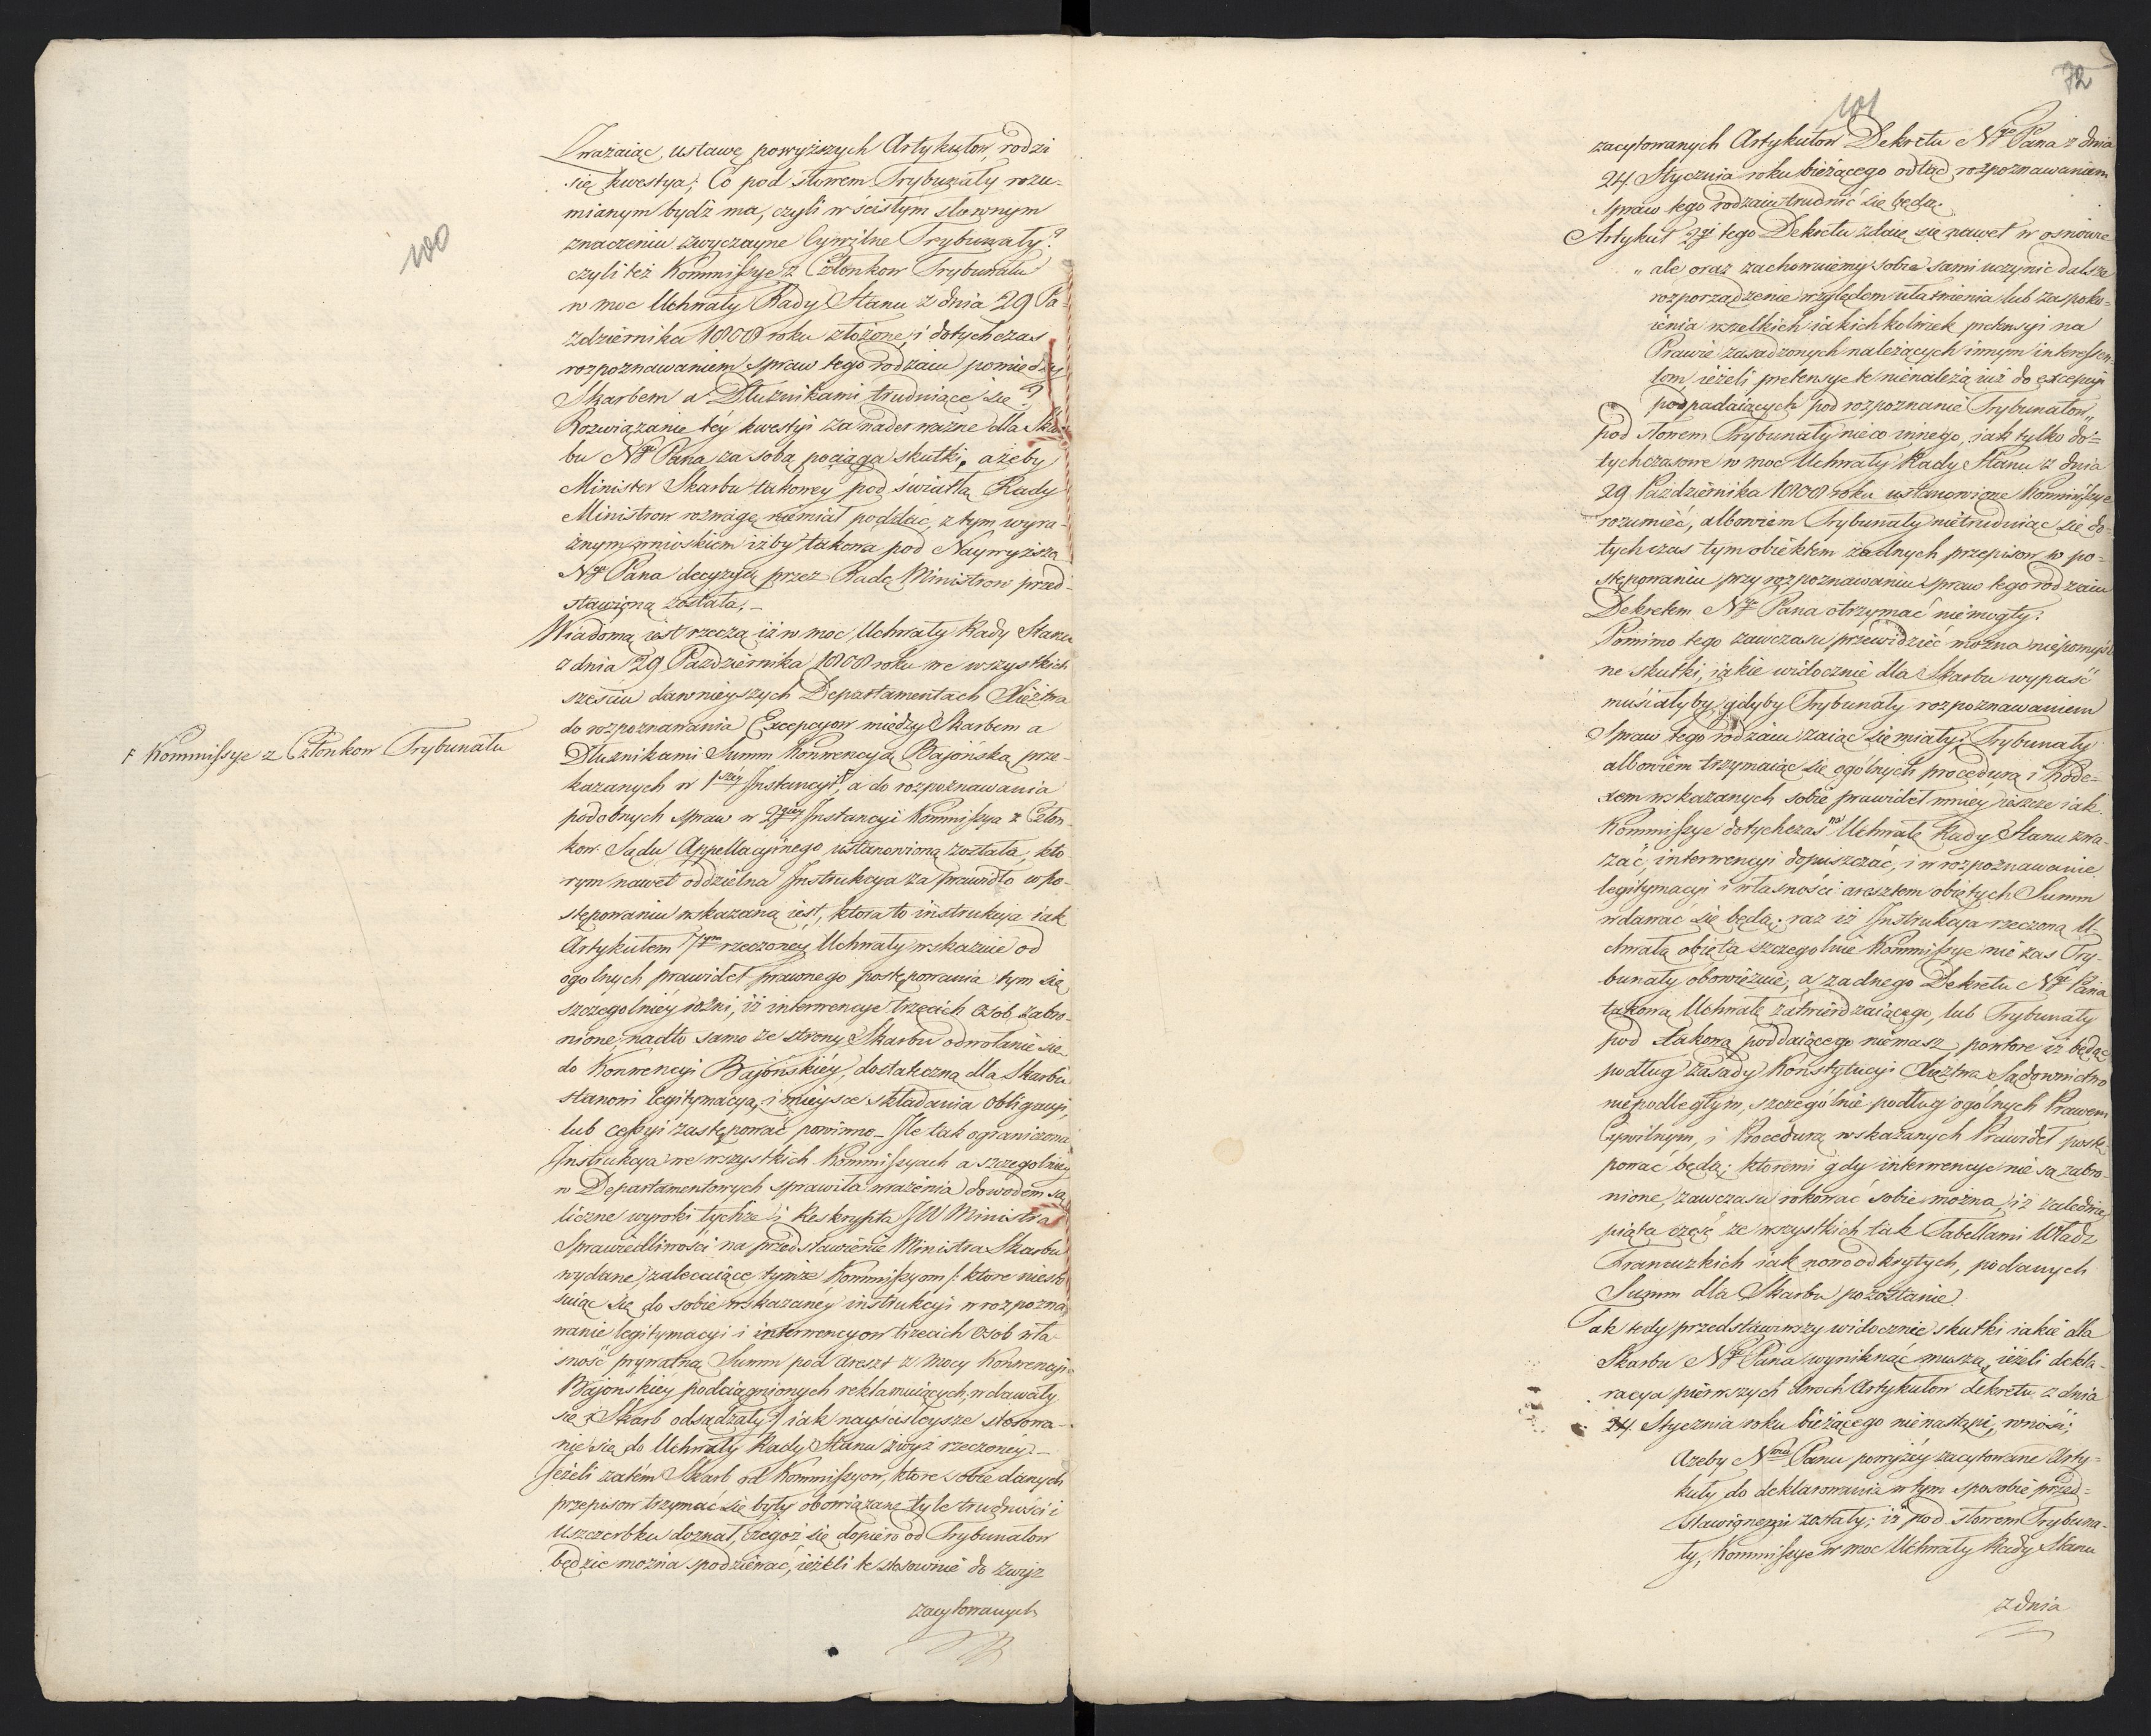 100
Zważaiąc ustawę powyższych Artykułow, rodzi
się kwestya; Co pod słowem Trybunały rozu-
mianym bydź ma, czyli w ścisłym słownym
znaczeniu zwyczayne Cywilne Trybunały?
czyli też Kommissye z Członkow Trybunału
w moc Uchwały Rady Stanu z dnia 29 Pa-
zdziernika 1808 roku złożone, i dotychczas
rozpoznawaniem spraw tego rodzaiu pomiędzy
Skarbem a Dłużnikami trudniące się?
Rozwiązanie téy kwestyi za nader ważne dla Skar-
bu Ngo Pana za sobą pociąga skutki, ażeby
Minister Skarbu takowey pod światłą Rady
Ministrow rozwagę niemiał poddać, z tym wyra-
źnym wnioskiem iżby takowa pod Naywyższą
Ngo Pana decyzyą przez Radę Ministrow przed-
stawioną została. –
Wiadomą iest rzeczą iż w moc Uchwały Rady Stanu
z dnia 29 Pazdziernika 1808 roku we wszystkich
sześciu dawnieyszych Departamentach Xięztwa
do rozpoznawania Excepcyow między Skarbem a
Dłużnikami Summ Konwencyą Bajońską prze-
kazanych w 1szey Instancyi F, a do rozpoznawania
F Kommissye z Członkow Trybunału
podobnych spraw w 2giey Instancyi Kommissya z Człon-
kow Sądu Appellacyinego ustanowioną została, kto-
rym nawet oddzielna Instrukcya za prawidło w po-
stępowaniu wskazaną iest, ktora to instrukcyja iak
Artykułem 7ym rzeczoney Uchwały wskazuie od
ogolnych prawideł prawnego postępowania tym się
szczegolniéy rożni, iż interwencye trzecich osob zabro-
nione, nadto samo ze strony Skarbu odwołanie się
do Konwencyi Bajońskiéy, dostateczną dla Skarbu
stanowi legitymacyą, i mieysce składania obligacyi,
lub cessyi zastępować powinno – Ile tak ograniczona
Instrukcya we wszystkich Kommissyach a szczegolniéy
w Departamentowych sprawiła wrażenia dowodem są
liczne wyroki tychże i Reskrypta JW Ministra
Sprawiedliwości na przedstawienie Ministra Skarbu
wydane, zalecaiące tymże Kommissyom /: ktore niesto-
suiąc się do sobie wskazanéy instrukcyi w rozpozna-
wanie legitymacyi i interwencyow trzecich osob wła-
sność prywatną Summ pod areszt z mocy Konwencyi
Bajonskiéy podciągnionych reklamuiących, wdawały
się i Skarb odsądzały :/ iak nayściśleysze stosowa-
nie się do Uchwały Rady Stanu zwyż rzeczonéy. –
Jeżeli zatém Skarb od Kommissyow, ktore sobie danych
przepisow trzymać się były obowiązane tyle trudności i
uszczerbku doznał, czegoż się dopiero od Trybunałow
będzie można spodziewać, ieżeli te stosownie do zwyż
zacytowanych
72
101
zacytowanych Artykułow Dekretu Ngo Pana z dnia
24. Stycznia roku bieżącego odtąd rozpoznawaniem
spraw tego rodzaiu trudnić się będą.
Artykuł 2gi tego Dekretu zdaie się nawet w osnowie
„ ale oraz zachowuiemy sobie sami uczynić dalsze
rozporządzenie względem ułatwienia lub zaspoko-
ienia wszelkich iakichkolwiek pretensyi na
Prawie zasadzonych należących innym interessen-
tom, ieżeli pretensye te nienależą iuż do excepcyi
podpadaiących pod rozpoznanie Trybunałow„
pod słowem Trybunały nieco innego, iak tylko do-
tychczasowe w moc Uchwały Rady Stanu z dnia
29 Października 1808 roku ustanowione Kommissye
rozumieć, albowiem Trybunały nietrudniąc się do-
tychczas tym obiektem żadnych przepisow w po-
stępowaniu przy rozpoznawaniu spraw tego rodzaiu
Dekretem Ngo Pana otrzymać niemogły.
Pomimo tego zawczasu przewidzieć można niepomyśl-
ne skutki, iakie widocznie dla Skarbu wypaść
musiałyby, gdyby Trybunały rozpoznawaniem
Spraw tego rodzaiu zaiąć się miały. Trybunały
albowiem trzymaiąc się ogólnych procedurą i Kode-
xem wskazanych sobie prawideł mniéy ieszcze iak
Kommissye dotychczas na Uchwałę Rady Stanu zwa-
żać, interwencyi dopuszczać, i w rozpoznawanie
legitymacyi i własności aresztem obiętych Summ
wdawać się będą: raz iż Instrukcya rzeczoną U-
chwałą obięta szczegolnie Kommissye nie zas Try-
bunały obowięzuie, a żadnego Dekretu Ngo Pana
takową Uchwałę zatwierdzaiącego, lub Trybunały
pod takową poddaiącego niemasz, powtore iż będąc
podług zasady Konstytucyi Xięztwa Sądownictwo
niepodległym, szczególnie podług ogólnych Prawem
Cywilnym, i Procedurą wskazanych Prawideł postę-
pować będą; ktoremi gdy interwencye nie są zabro-
nione, zawczasu rokować sobie można, iż zaledwie
piąta część ze wszystkich tak Tabellami Władz
Francuzkich iak nowoodkrytych, podanych
Summ dla Skarbu pozostanie.
Tak tedy przedstawiwszy widocznie skutki iakie dla
Skarbu Ngo Pana wyniknąć muszą, ieżeli dekla-
racya pierwszych dwoch Artykułow dekretu z dnia
24. Stycznia roku bieżącego nienastąpi, wnosi;
Ażeby Nmu Panu powyżéy zacytowane Arty-
kuły do deklarowania w tym sposobie przed-
stawionemi zostały; iż pod słowem Trybuna-
ły, Kommissye w moc Uchwały Rady Stanu
z dnia